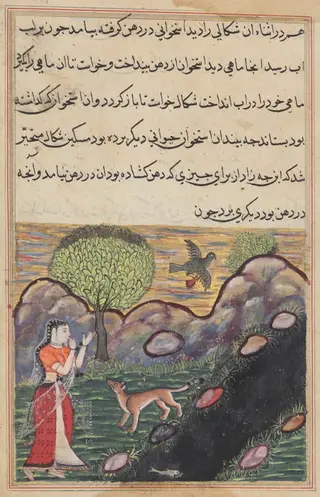 هم در اثناء ان شكالی را دید استخوانی در دهن گرفته بیامد چون بر لب
اب رسید انجا ماهی دید استخوان از دهن بینداخت و خواست تا ان ماهی را بگیرد
ماهی خود را در اب انداخت شكال خواست تا باز گردد و ان استخوان كه گذاشته
بود بستاند چه بیند ان استخوان حیوانی دیگر برده بود مسكین شكال متحیر
شد كه این چه زاد از برای چیزی كه دهن كشاده بود ان در دهن نیامد و انچه
در دهن بود دیگری برد چون